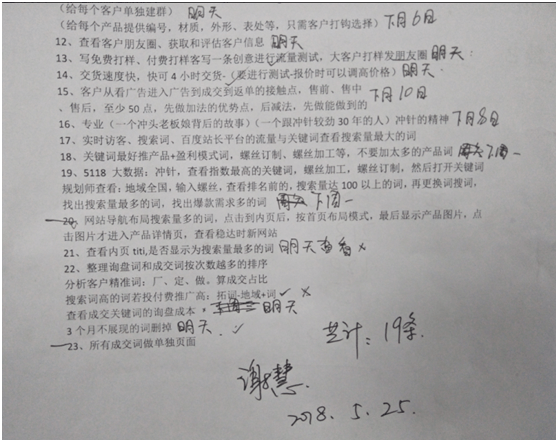 (给每个客户单独建群) 明天
(给每个产品提供编号,材质,外形、表处等,只需客户打钩选择) 下月6日
12、查看客户朋友圈、获取和评估客户信息 明天
13、写免费打样、付费打样客写一条创意进行流量测试,大客户打样发朋友圈 明天
14、交货速度快,快可4小时交货-(要进行测试-报价时可以调高价格) 明天
15、客户从看广告进入广告到成交到返单的接触点,售前、售中 下月10日
、售后,至少50点,先做加法的优势点,后减法,先做能做到的
16、专业(一个冲头老板娘背后的故事)(一个跟冲针较劲30年的人)冲针的精神 下月8日
17、实时访客、搜索词、百度站长平台的流量与关键词查看搜索量最大的词
18、关键词最好推产品+盈利模式词,螺丝订制、螺丝加工等,不要加太多的产品词 下周一
19、5118 大数据:冲针,查看指数最高的关键词,螺丝加工,螺丝订制,然后打开关键词
规划师查看:地域全国,输入螺丝,查看排名前的,搜索量达100以上的词,再更换词搜词,
找出搜索量最多的词,找出爆款需求多的词 下周一
20、网站导航布局搜索量多的词,点击到内页后,按首页布局模式,最后显示产品图片,点
击图片才进入产品详情页,查看稳达时新网站
21、查看内页 titi,是否显示为搜索量最多的词 明天查看 ×
22、整理询盘词和成交词按次数越多的排序
分析客户精准词:厂、定、做。算成交占比
搜索词高的词若投付费推广高:拓词-地域+词 ✓ ×
查看成交关键词的询盘成本。 明天
3个月不展现的词删掉 明天. ✓
23、所有成交词做单独页面
共计:19条.
谢慧.
2018.5.25.